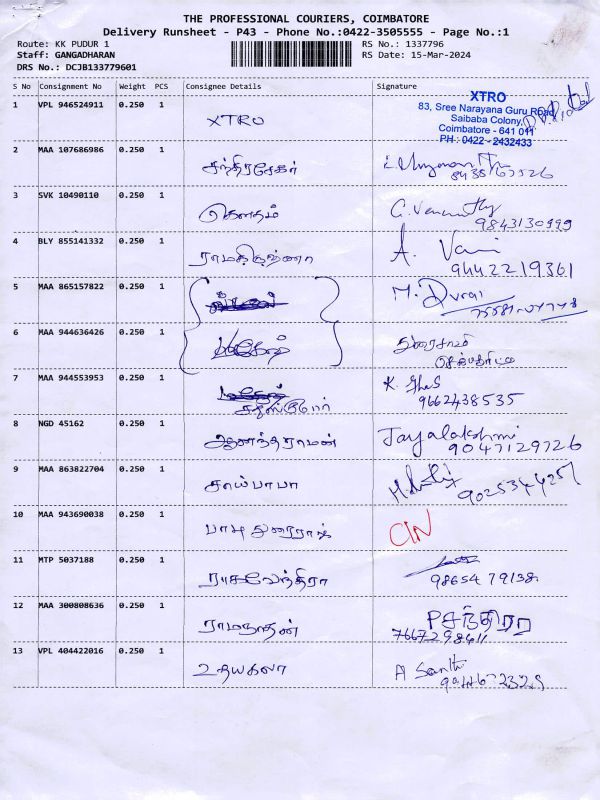 THE PROFESSIONAL COURIERS, COIMBATORE
Delivery Runsheet - P43 - Phone No.:0422-3505555 - Page No.:1
Route: KK PUDUR 1 RS No.: 1337796
Staff: GANGADHARAN RS Date: 15-Mar-2024
DRS No.: DCJB133779601
S No Consignment No Weight PCS Consignee Details Signature
1 VPL 946524911 0.250 1 XTRO
XTRO
83, Sree Narayana Guru Road
Saibaba Colony,
Coimbatore - 641 011
PH : 0422 - 2432433
2 MAA 107686986 0.250 1 சந்திரசேகர்
3 SVK 10490110 0.250 1 கௌதம் 9843130999
4 BLY 855141332 0.250 1 ராமகிருஷ்ணா A. Vani
9442219361
5 MAA 865157822 0.250 1 M. Durai
6 MAA 944636426 0.250 1 துரைசாமி
7 MAA 944553953 0.250 1 K.
9662438535
8 NGD 45162 0.250 1 ஆனந்தராமன் Jayalakshmi
9047129726
9 MAA 863822704 0.250 1 சாய்பாபா 9025344257
10 MAA 943690038 0.250 1 பாடி துரைராஜ்
11 MTP 5037188 0.250 1 ராகவேந்திரா 9865479138
12 MAA 300808636 0.250 1 ராமநாதன் P சந்திரா
7667298611
13 VPL 404422016 0.250 1 உதயகலா A Santhi